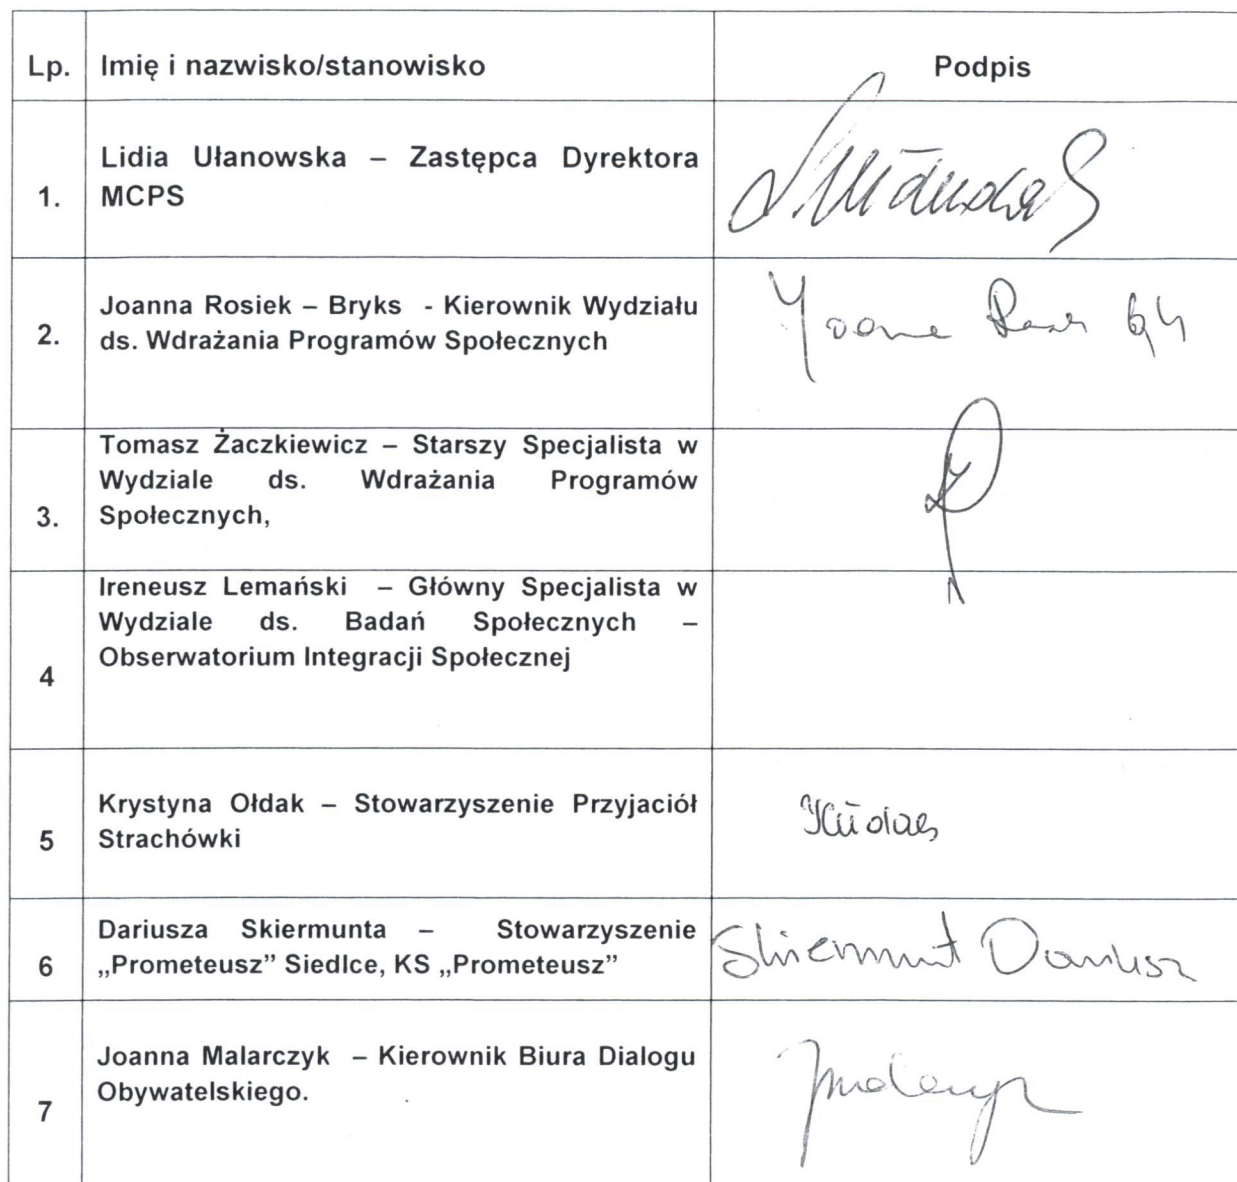 Lp. Imię i nazwisko/stanowisko Podpis
1. Lidia Ułanowska – Zastępca Dyrektora
MCPS
2. Joanna Rosiek – Bryks - Kierownik Wydziału
ds. Wdrażania Programów Społecznych
3. Tomasz Żaczkiewicz – Starszy Specjalista w
Wydziale ds. Wdrażania Programów
Społecznych,
4 Ireneusz Lemański – Główny Specjalista w
Wydziale ds. Badań Społecznych –
Obserwatorium Integracji Społecznej
5 Krystyna Ołdak – Stowarzyszenie Przyjaciół
Strachówki
6 Dariusza Skiermunta – Stowarzyszenie
„Prometeusz” Siedlce, KS „Prometeusz”
Skiermunt Dariusz
7 Joanna Malarczyk – Kierownik Biura Dialogu
Obywatelskiego.